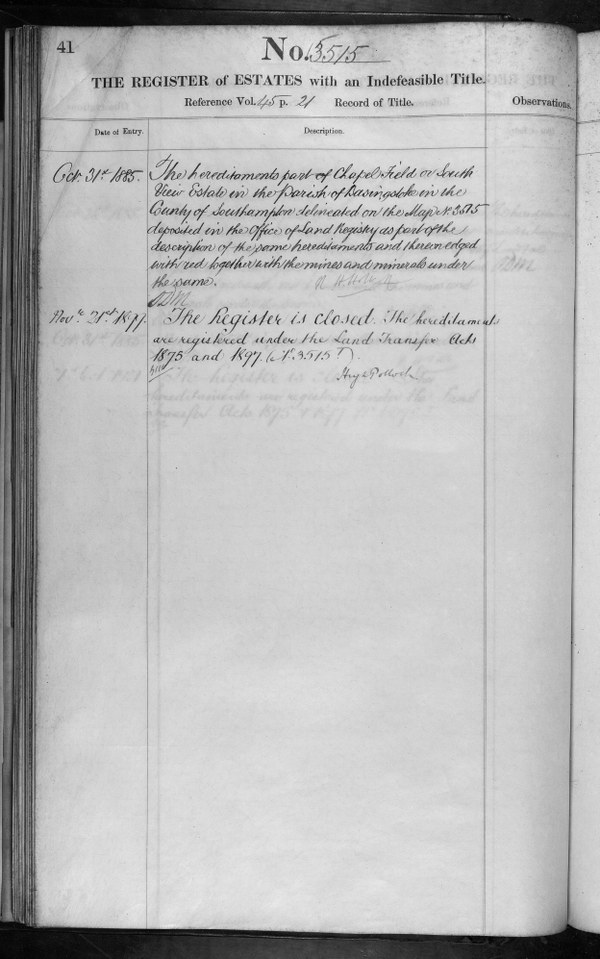 41
No. 3515
THE REGISTER of ESTATES with an Indefeasible Title.
Reference Vol. 45 p. 21 Record of Title.
Observations.
Date of Entry.
Description.
Oct. 31st 1885.
The hereditaments part of Chapel Field or South
View Estate in the Parish of Basingstoke in the
County of Southampton delineated on the Map No 3515
deposited in the Office of Land Registry as part of the
description of the same hereditaments and thereon edged
with red together with the mines and minerals under
the same.
Novr. 21st 1899.
The Register is closed. The hereditaments
are registered under the Land Transfer Acts
1875 and 1897. (No. 3515 T).
Hugh Pollock